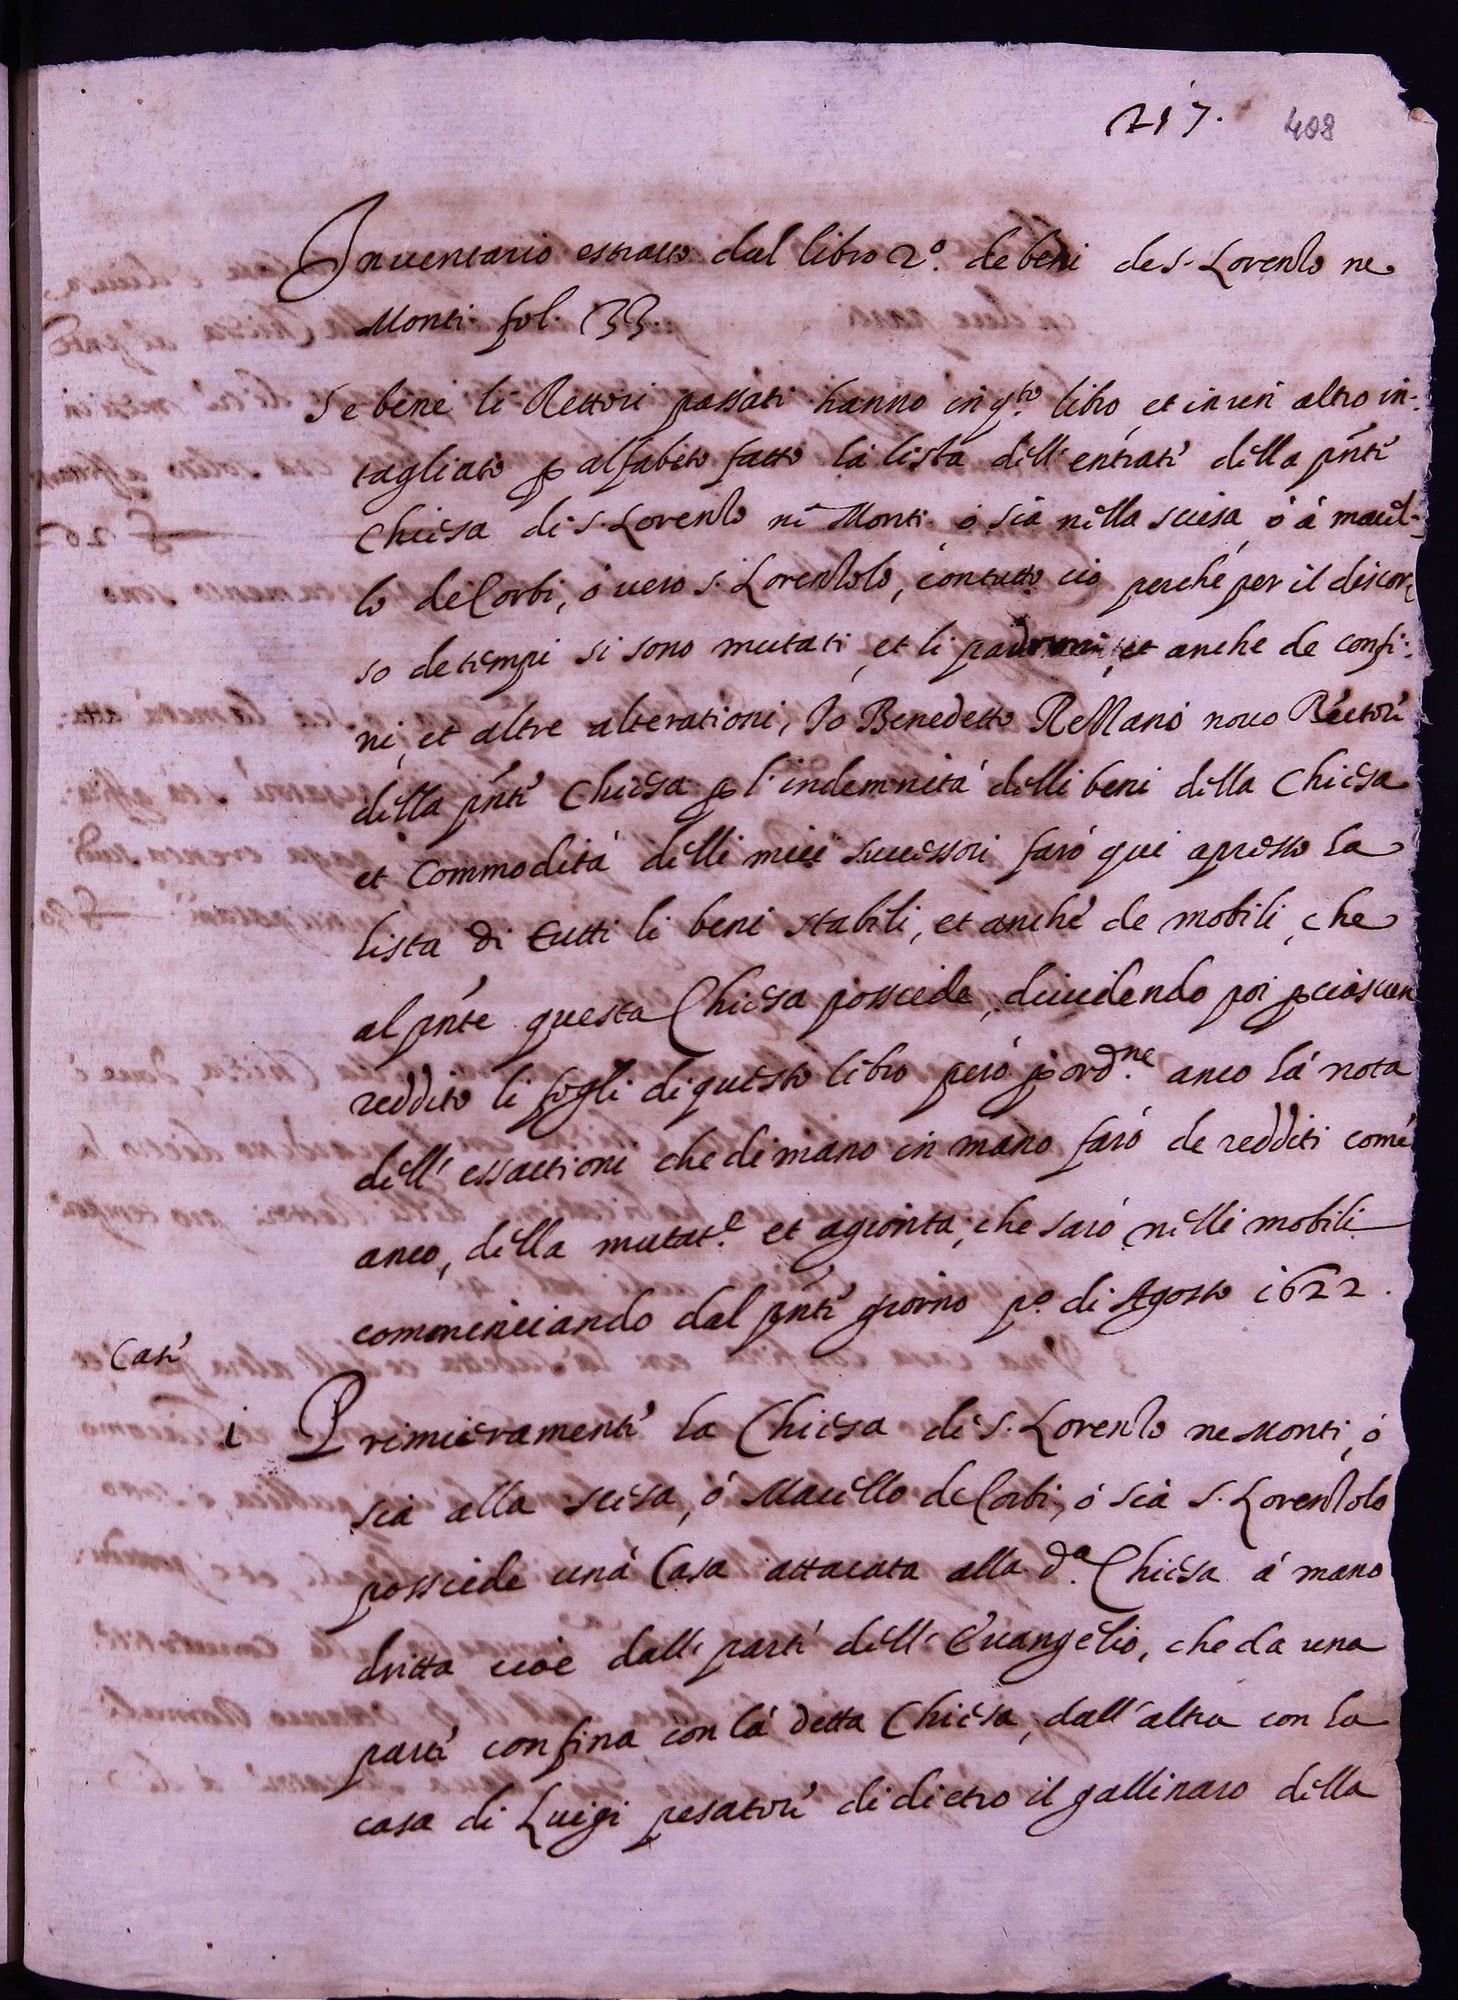 217. 408
Inventario estratto dal libro 2º. de beni de S. Lorenzo ne
Monti fol. 133.
Se bene li Rettori passati hanno in q.to libro, et in un altro in-
tagliato p alfabeto fatto la lista dell'entrate della pñte
Chiesa di S. Lorenzo ne Monti ò sia nella scesa, ò à macel-
lo de Corbi, ò vero S. Lorenzolo, contutto ciò perche per il discor-
so de tiempi si sono mutati et li padroni, et anche de confi-
ni, et altre alterationi, Io Benedetto Rettore
della pñte Chiesa p l'indemnità delli beni della Chiesa
et Commodità delli miei successori farò qui apresso la
lista di tutti li beni stabili, et anche de mobili, che
al pñte questa Chiesa possiede, dividendo poi p ciascun
reddito li fogli di questo libro però p ord.ne anco la nota
dell'essattioni che di mano in mano farò de redditi come
anco, della mutat.e et agionta, che farò nelli mobili
commenciando dal pñte giorno pº. di Agosto 1622.
Case
1 Primieramente la Chiesa di S. Lorenzo ne Monti, ò
sia alla scesa, ò Macello de Corbi, ò sia S. Lorenzolo
possiede una Casa attacata alla d.a Chiesa à mano
dritta cioè dalle parte dell'Evangelio, che da una
parte confina con la detta Chiesa, dall'altra con la
casa di Luigi pesatore di dietro il gallinaro della